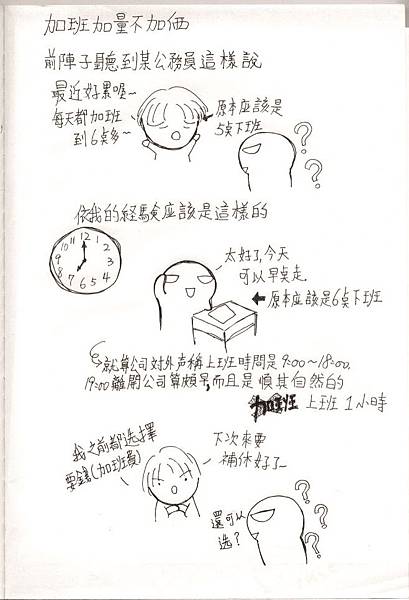 加班加量不加価
前陣子聽到某公務員這樣說
最近好累喔~
每天都加班
到6点多~
原本应該是
5点下班
? ?
依我的経験应該是這樣的
12 1 2 3 4 5 6 7 8 9 10 11
太好了,今天
可以早点走.
原本应該是6点下班
就算公司对外声稱上班時間是9:00~18:00,
19:00離開公司算頗早,而且是順其自然的
加班 上班1小時
我之前都选擇
要錢(加班費)
下次來要
補休好了~
還可以
选?
? ? ?